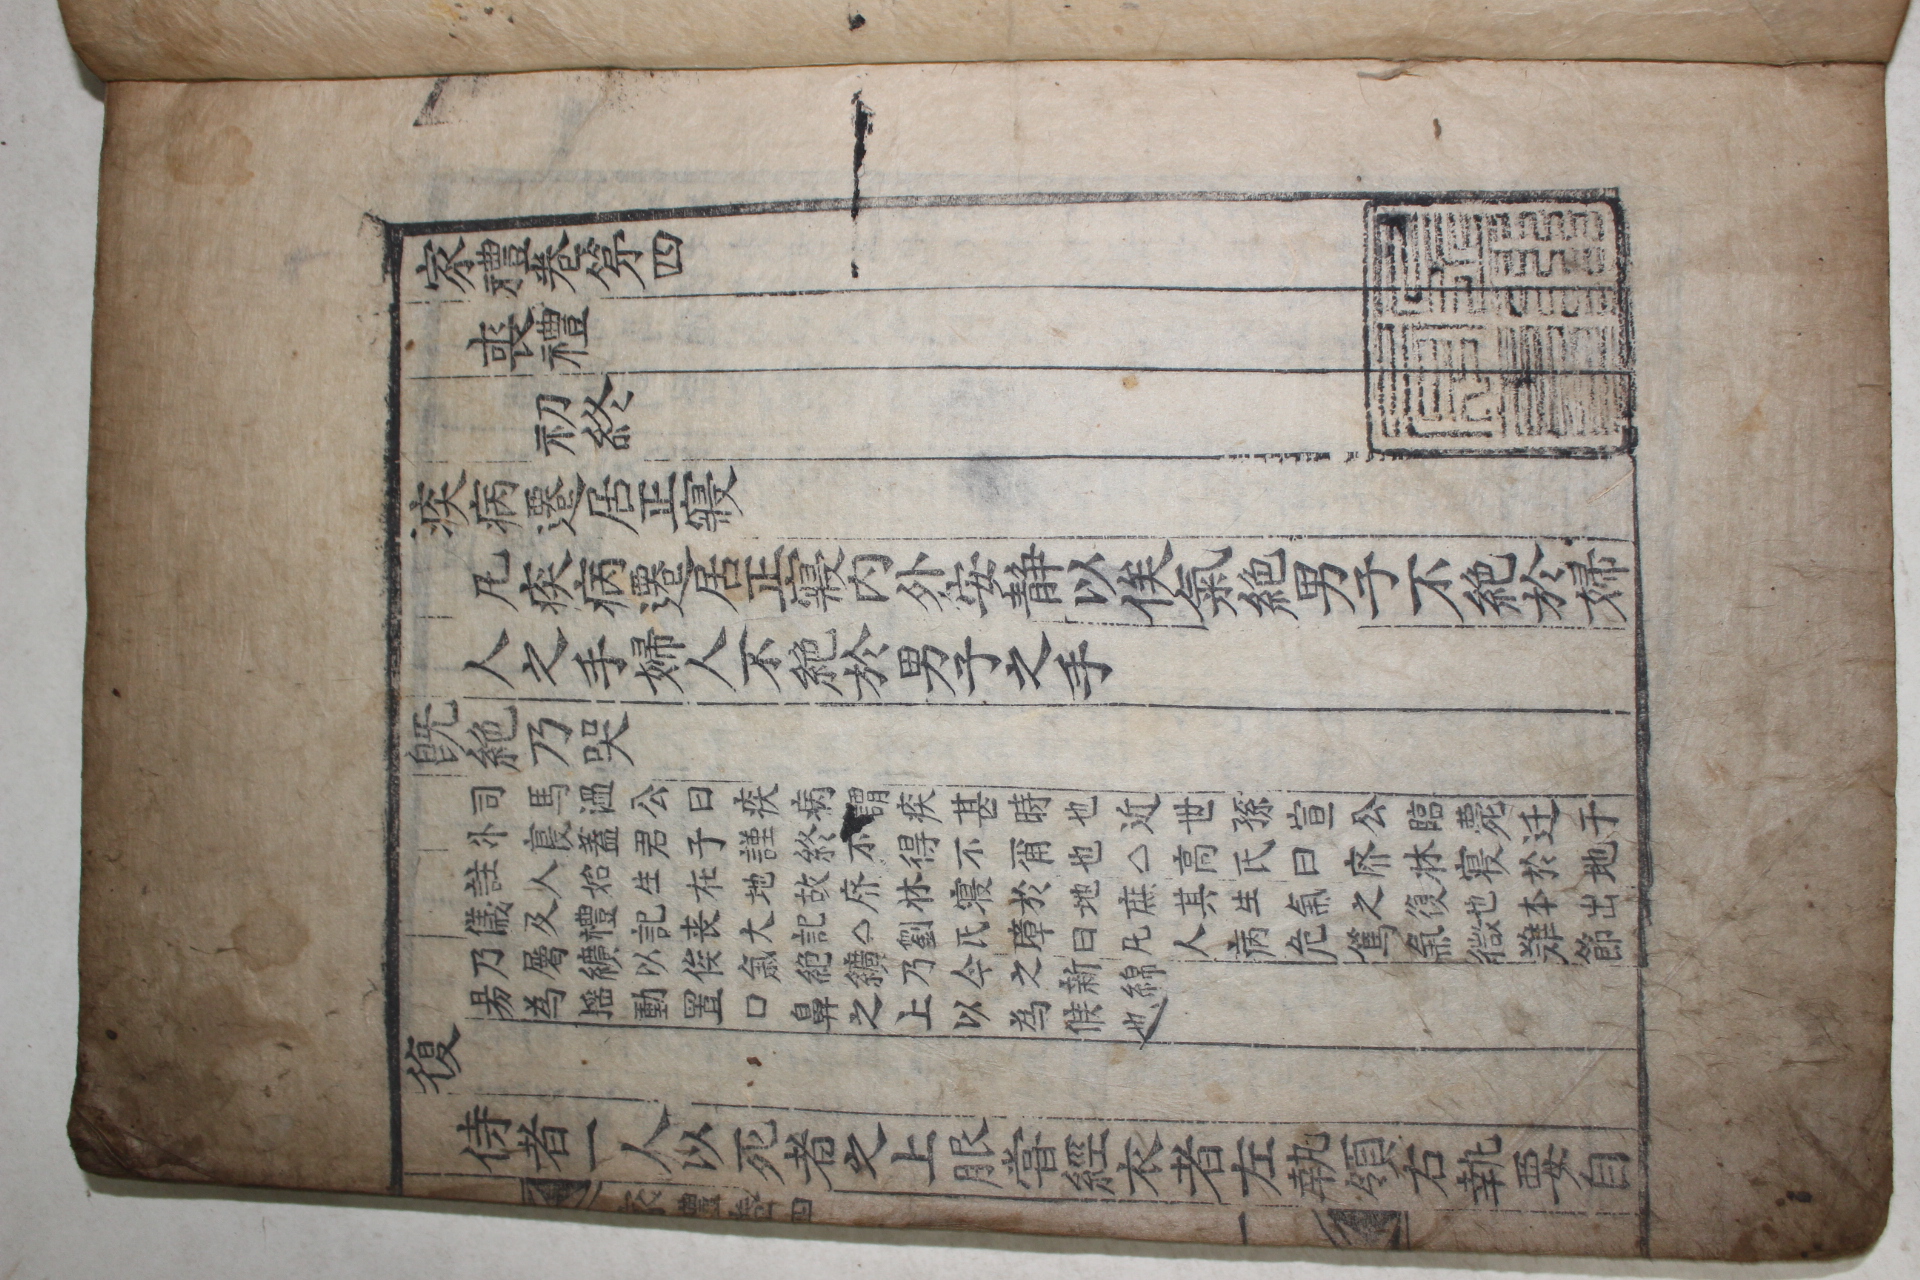 家禮卷第四
喪禮
初終
疾病遷居正寢
凡疾病遷居正寢内外安靜以俟氣絶男子不絶於婦
人之手婦人不絶於男子之手
旣絶乃哭
司馬溫公曰疾病謂疾甚時也近世孫宣公臨薨迁于
外寢蓋君子謹終不得不爾也△高氏曰廢牀寢於地
註人始生在地故廢牀寢於地庶其生氣之復也本出
儀及禮記喪大記△劉氏璋曰凡人病危篤氣微難節
乃屬纊以俟氣絶纊乃今之新綿
易為搖動置口鼻之上以為候也
復
侍者一人以死者之上服嘗經衣者左執領右執要自
家禮卷四
一